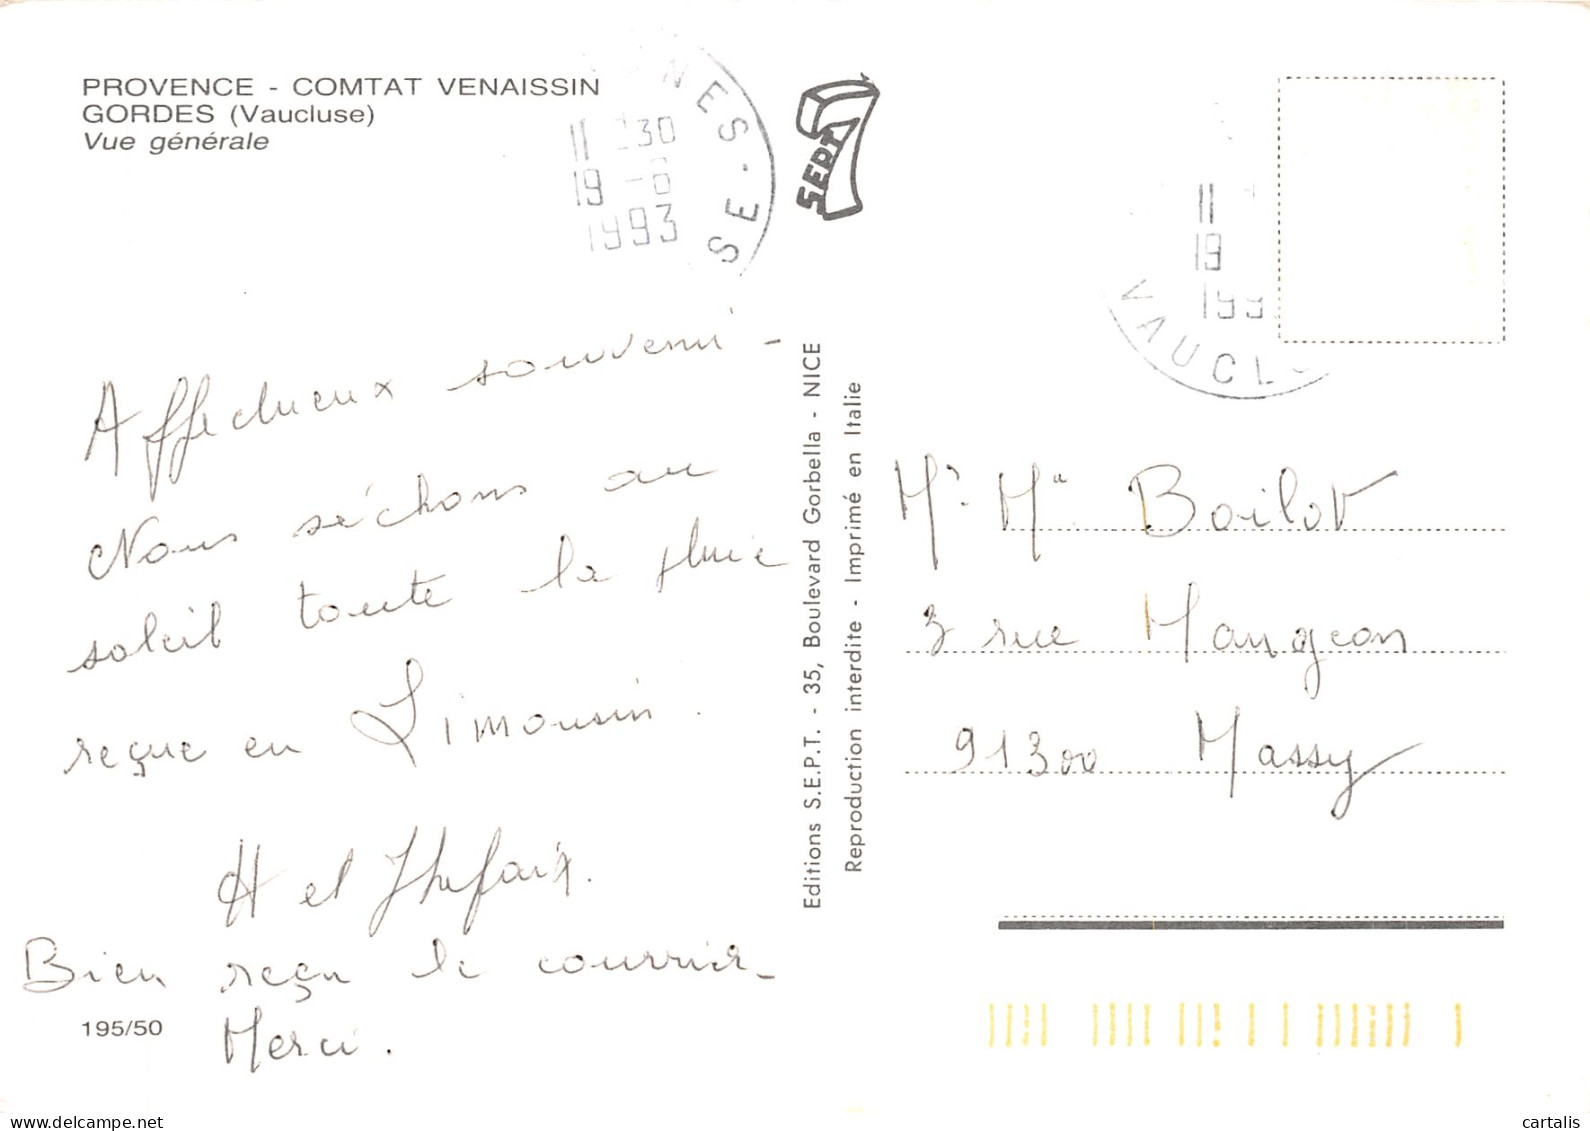 PROVENCE - COMTAT VENAISSIN
GORDES (Vaucluse)
Vue générale
NES-
SE
11 30
19 -6
1993
SEPT 7
11
19
199
VAUCL
Affectueux souvenir -
Nous séchons au
soleil toute la pluie
reçue en Limousin.
H et
Bien reçu le courrier -
Merci.
195/50
Editions S.E.P.T. - 35, Boulevard Gorbella - NICE
Reproduction interdite - Imprimé en Italie
Mr Me Boilot
3 rue Mangeon
91300 Massy
www.delcampe.net
cartalis